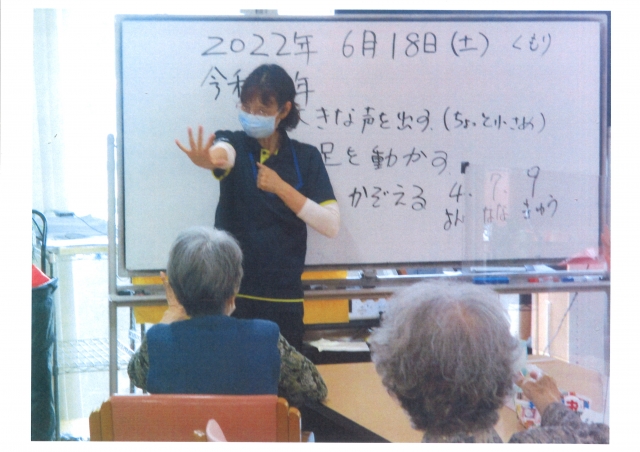 2022年 6月18日(土) くもり
今和 年
きな声を出す.(ちょっと小さめ)
足を動かす.
かぞえる 4. 7. 9
よん なな きゅう